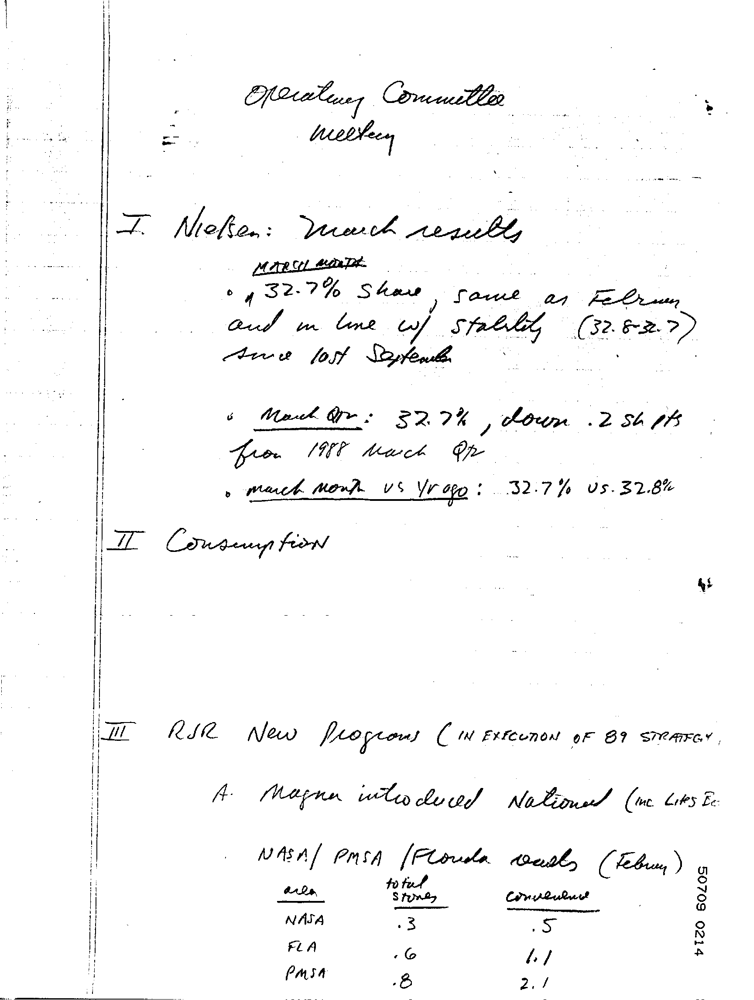 Operating Committee
Meeting
I. Nielsen: March results
MARCH MONTH
• 32.7% Share, same as February
and in line w/ stability (32.8-32.7)
since last September
• March Qtr: 32.7%, down .2 sh pts
from 1988 March Qtr
• March Month vs Yr ago: 32.7% vs. 32.8%
II Consumption
III RJR New Programs (IN EXECUTION OF 89 STRATEGY,
A. Magna introduced National (inc
NASA/ PMSA /Florida results (February)
area total stores convenience
NASA .3 .5
FLA .6 1.1
PMSA .8 2.1
50709 0214